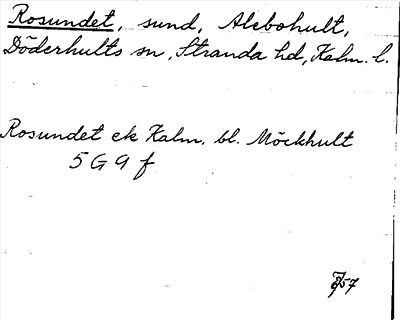 Rosundet, sund, Alebohult,
Döderhults sn, Stranda hd, Kalm. l.
Rosundet ek Kalm. bl. Möckhult
5 G 9 f
57